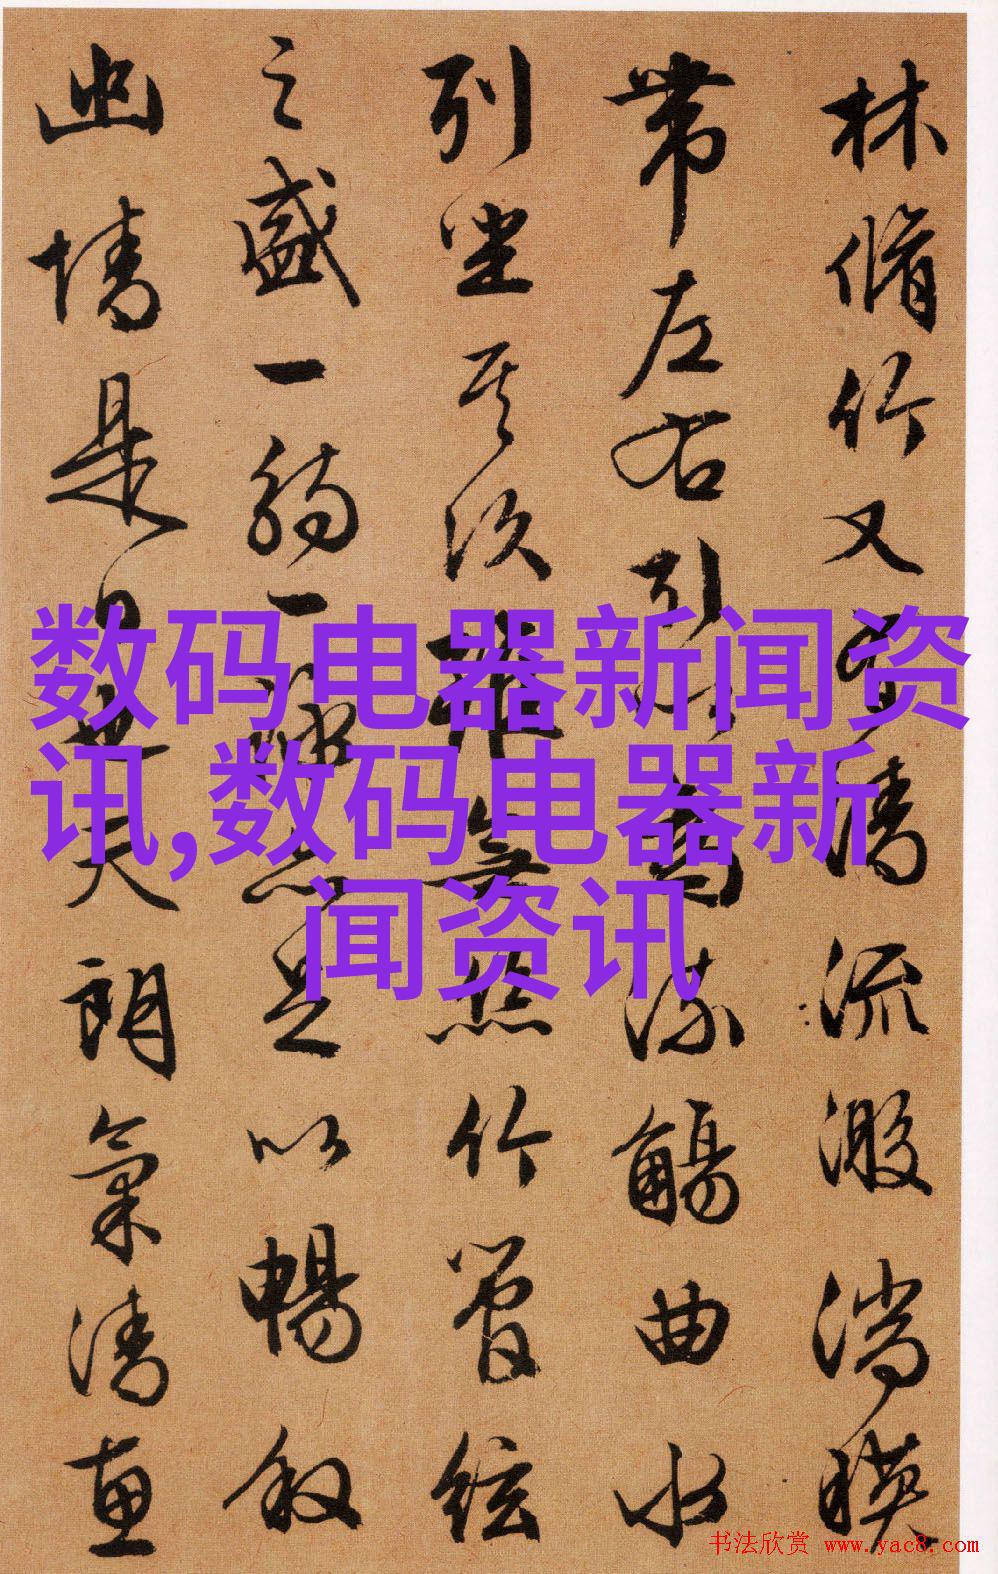 林脩竹又有清流激湍暎
帶左右引以為流觴曲水
列坐其次雖無絲竹管絃
之盛一觴一詠亦足以暢敘
幽情是日也天朗氣清惠
数码电器新闻资
讯,数码电器新
闻资讯
书法欣赏 www.yac8.com